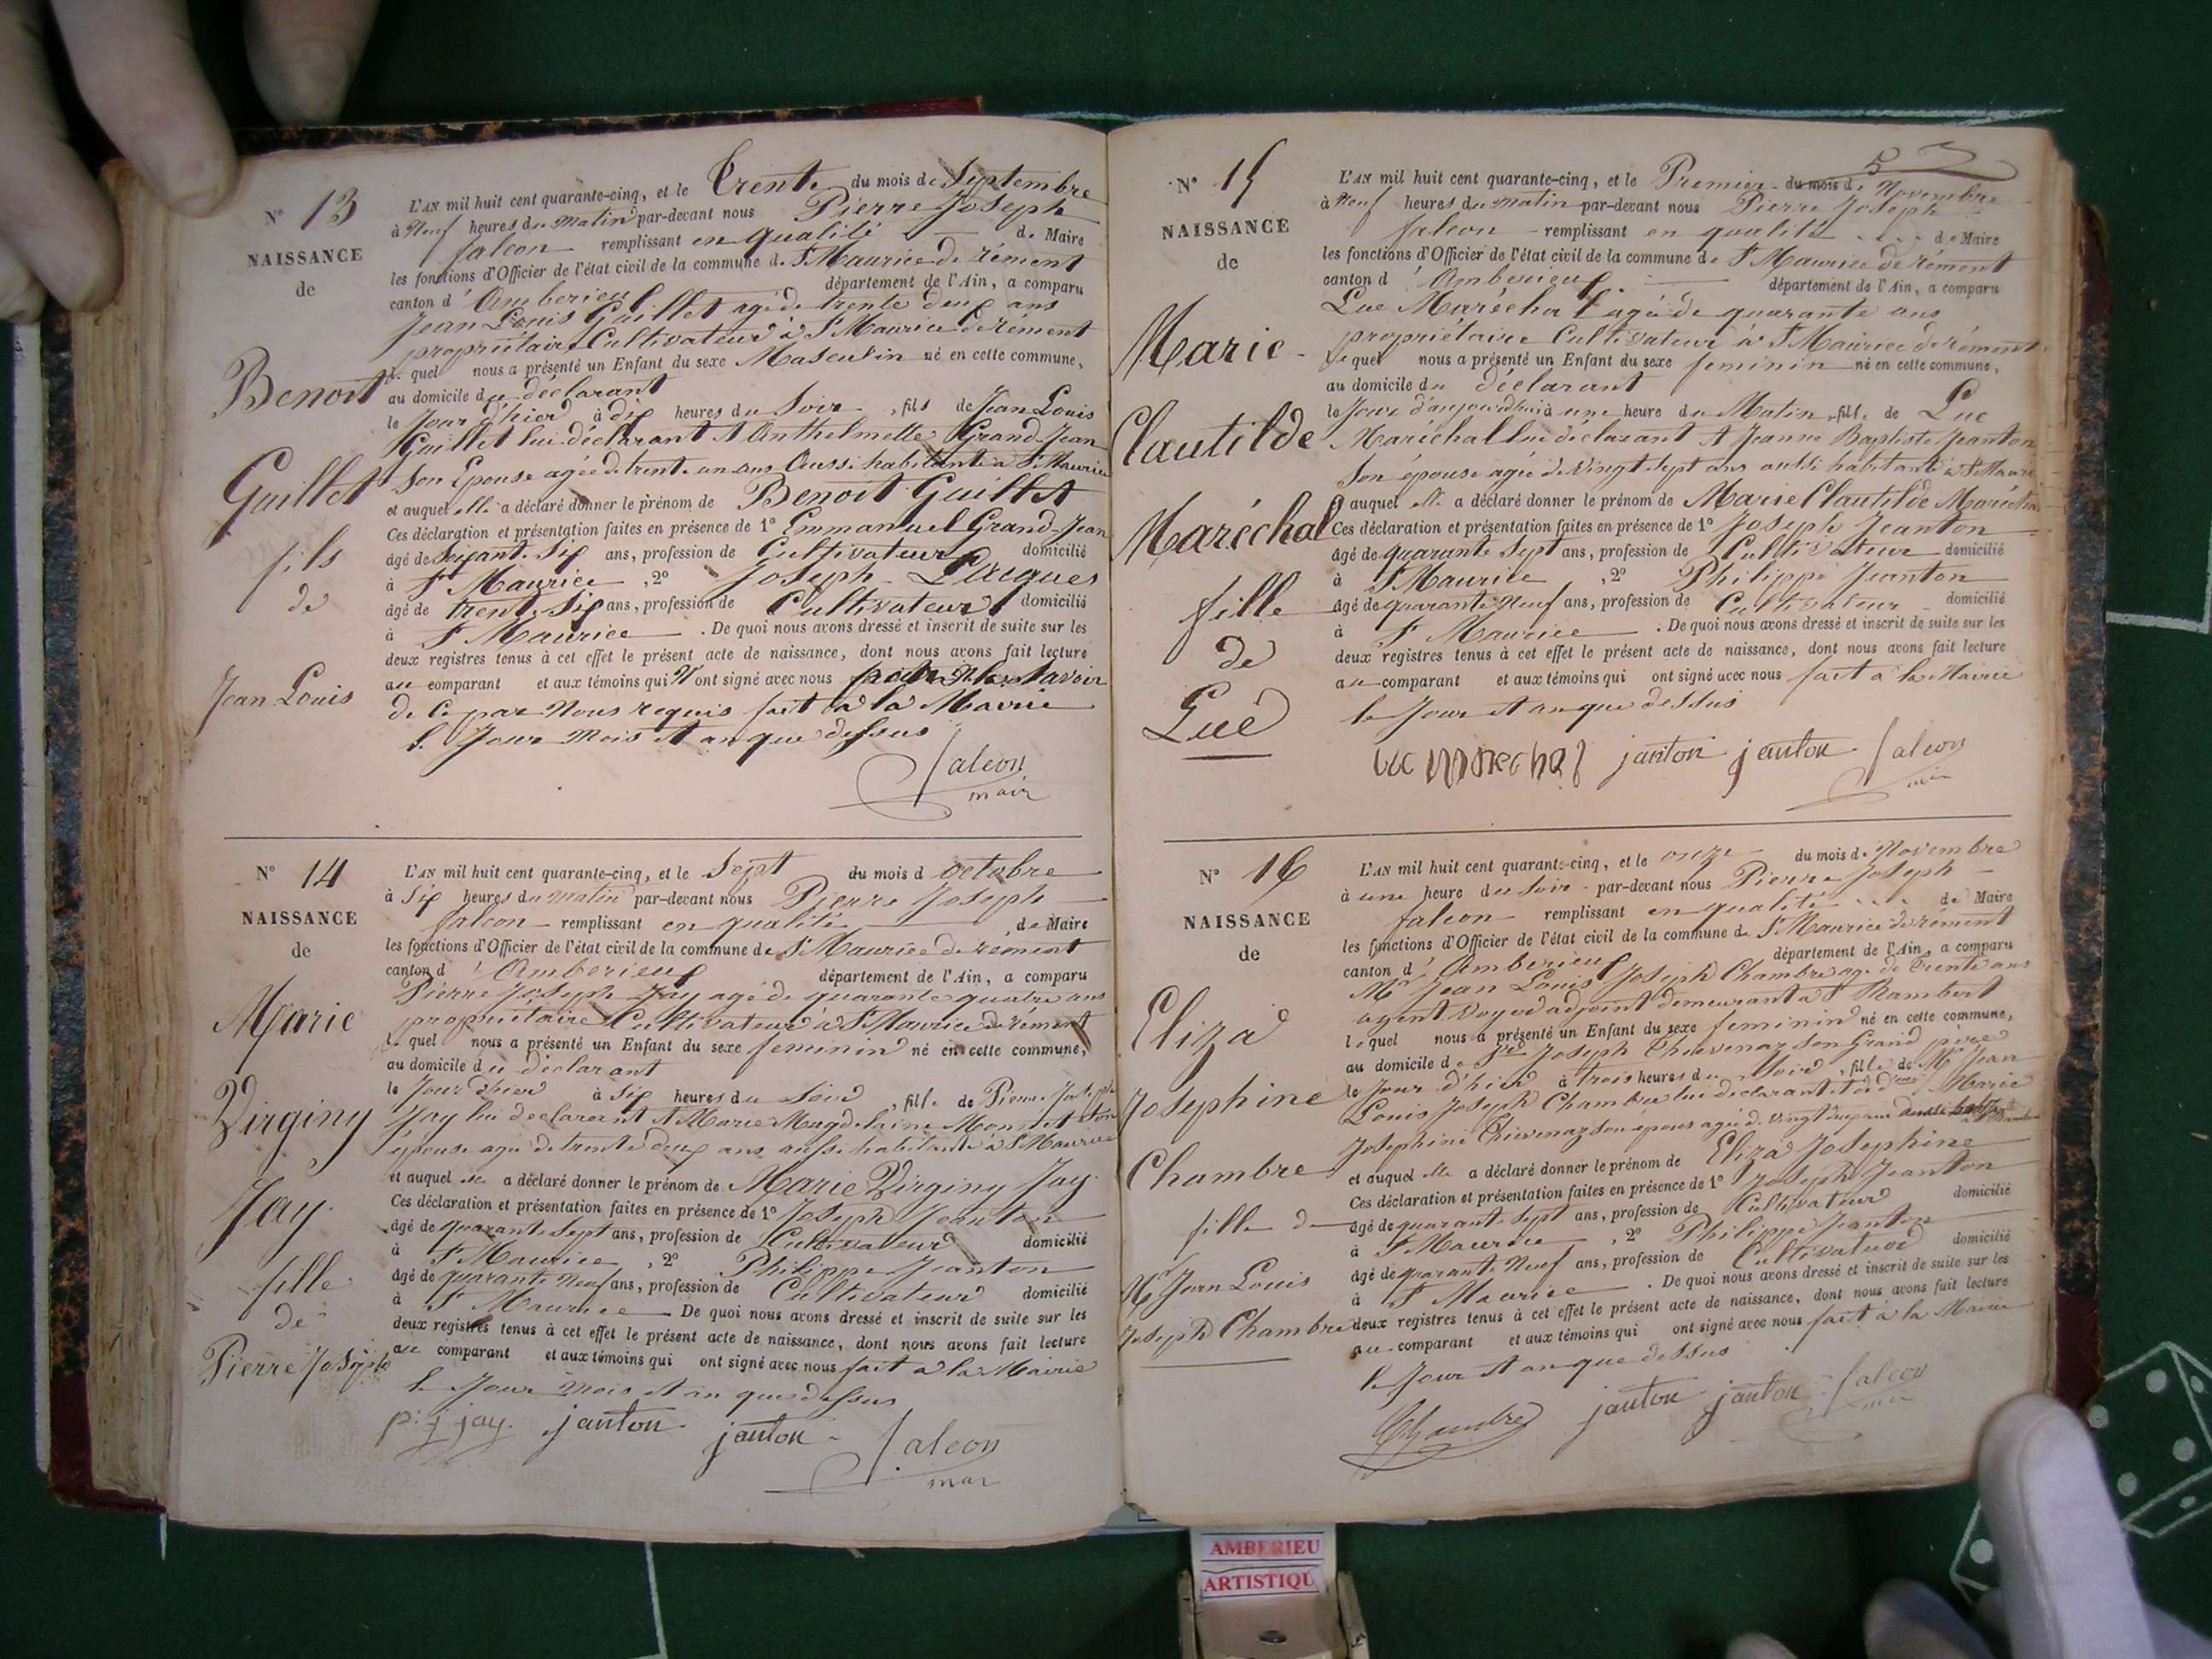 N° 13
NAISSANCE
de
Benoit
Guillet
fils
de
Jean Louis
L'AN mil huit cent quarante-cinq, et le Trente du mois de Septembre
à Neuf heures du Matin par-devant nous Pierre Joseph
falcon remplissant en qualité de Maire
les fonctions d'Officier de l'état civil de la commune de St Maurice de rément
canton d'Amberieux département de l'Ain, a comparu
Jean Louis Guillet agé de trente deux ans
propriétaire Cultivateur à St Maurice de rément
le quel nous a présenté un Enfant du sexe Masculin né en cette commune,
au domicile du déclarant
le Jour d'hier à dix heures du Soir, fils de Jean Louis
Guillet lui déclarant et Anthelmette Grand-Jean
Son Epouse agée de trente un ans Aussi habitante à St Maurice
et auquel elle a déclaré donner le prénom de Benoit Guillet
Ces déclaration et présentation faites en présence de 1° Emmanuel Grand-Jean
âgé de Soixante Six ans, profession de Cultivateur domicilié
à St Maurice, 2° Joseph Jacques
âgé de trente Six ans, profession de Cultivateur domicilié
à St Maurice. De quoi nous avons dressé et inscrit de suite sur les
deux registres tenus à cet effet le présent acte de naissance, dont nous avons fait lecture
au comparant et aux témoins qui N'ont signé avec nous pour ne le Savoir
de Ce par Nous requis fait à la Mairie
le Jour Mois et an que dessus
falcon
mair
N° 14
NAISSANCE
de
Marie
Virginy
Jay
fille
de
Pierre Joseph
L'AN mil huit cent quarante-cinq, et le Sept du mois d octobre
à Six heures du matin par-devant nous Pierre Joseph
falcon remplissant en qualité de Maire
les fonctions d'Officier de l'état civil de la commune de St Maurice de rément
canton d'Amberieux département de l'Ain, a comparu
Pierre Joseph Jay agé de quarante quatre ans
propriétaire Cultivateur à St Maurice de rément
le quel nous a présenté un Enfant du sexe feminin né en cette commune,
au domicile du déclarant
le Jour d'hier à Six heures du Soir, fille de Pierre Joseph
Jay lui declarant et Marie Magdelaine Monnet Son
épouse agée de trente deux ans aussi habitante à St Maurice
et auquel elle a déclaré donner le prénom de Marie Virginy Jay
Ces déclaration et présentation faites en présence de 1° Joseph Jeanton
âgé de quarante Sept ans, profession de Cultivateur domicilié
à St Maurice, 2° Philippe Jeanton
âgé de quarante Neuf ans, profession de Cultivateur domicilié
à St Maurice De quoi nous avons dressé et inscrit de suite sur les
deux registres tenus à cet effet le présent acte de naissance, dont nous avons fait lecture
au comparant et aux témoins qui ont signé avec nous fait à la Mairie
le Jour Mois et an que dessus
p: j jay. janton janton falcon
mar
52
N° 15
NAISSANCE
de
Marie
Clautilde
Maréchal
fille
de
Luc
L'AN mil huit cent quarante-cinq, et le Premier du mois de Novembre
à Neuf heures du matin par-devant nous Pierre Joseph
falcon remplissant en qualité de Maire
les fonctions d'Officier de l'état civil de la commune de St Maurice de rément
canton d'Amberieux département de l'Ain, a comparu
Luc Maréchal agé de quarante ans
propriétaire Cultivateur à St Maurice de rément
le quel nous a présenté un Enfant du sexe feminin né en cette commune,
au domicile du déclarant
le Jour d'aujourdhui à une heure du Matin, fille de Luc
Maréchal lui déclarant et Jeanne Baptiste Jeanton
Son épouse agée de Vingt Sept ans aussi habitante à St Maurice
auquel elle a déclaré donner le prénom de Marie Clautilde Maréchal
Ces déclaration et présentation faites en présence de 1° Joseph Jeanton
âgé de quarante Sept ans, profession de Cultivateur domicilié
à St Maurice, 2° Philippe Jeanton
âgé de quarante Neuf ans, profession de Cultivateur domicilié
à St Maurice. De quoi nous avons dressé et inscrit de suite sur les
deux registres tenus à cet effet le présent acte de naissance, dont nous avons fait lecture
au comparant et aux témoins qui ont signé avec nous fait à la Mairie
le Jour et an que dessus
luc marechal janton janton falcon
mair
N° 16
NAISSANCE
de
Eliza
Josephine
Chambre
fille de
Mr Jean Louis
Joseph Chambre
L'AN mil huit cent quarante-cinq, et le onze du mois de Novembre
à une heure du Soir par-devant nous Pierre Joseph
falcon remplissant en qualité de Maire
les fonctions d'Officier de l'état civil de la commune de St Maurice de rément
canton d'Amberieux département de l'Ain, a comparu
Mr Jean Louis Joseph Chambre agé de Trente ans
agent Voyer adjoint demeurant à St Rambert
le quel nous a présenté un Enfant du sexe feminin né en cette commune,
au domicile de Joseph Chievenaz Son Grand père
le Jour d'hier à trois heures du Soir, fille de Mr Jean
Louis Joseph Chambre lui déclarant et de Marie
Josephine Chievenaz Son épouse agée de Vingt deux ans aussi habit St Rambert
et auquel elle a déclaré donner le prénom de Eliza Josephine
Ces déclaration et présentation faites en présence de 1° Joseph Jeanton
âgé de quarante Sept ans, profession de Cultivateur domicilié
à St Maurice, 2° Philippe Jeanton
âgé de quarante Neuf ans, profession de Cultivateur domicilié
à St Maurice. De quoi nous avons dressé et inscrit de suite sur les
deux registres tenus à cet effet le présent acte de naissance, dont nous avons fait lecture
au comparant et aux témoins qui ont signé avec nous fait à la Mairie
le Jour et an que dessus
Chambre janton janton falcon
mair
AMBERIEU
ARTISTIQU